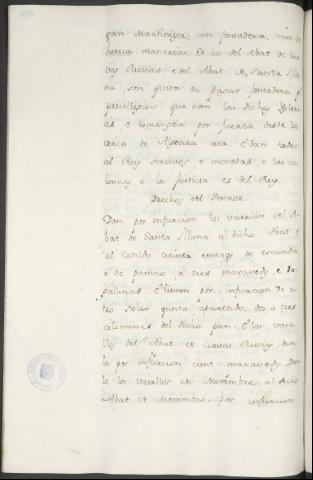 pan Martiniega, nin fonsadera, nin
otra manerias. Et los del Abat de
Cuevas Ruvias e del Abat de Santa Illa
na son quitos de pagar fonsadera
previllegios que han las dichas Igles
as, e tomangela por fuerza desde la
cerca de acá e dan todos
al Rey servicios e monedas e las ca
lonnas e la Justicia es del Rey.
Derechos del Sennor.
Dan por infurcion los vasallos del A
bat de Santa Illana al dicho Abat e
al Cavildo treinta eminas de escanda
e de panizo e tres maravedis, e dos
gallinas. E lievan por infurcion de o
tro solar questa apartado, dos o tres
celemines del dicho pan. E los vasa
llos del Abat de Cuevas Ruvias dan
le por infurcion cient maravedis. Dan
le los vasallos de Merimbre al dicho
Abat de Merimbre por infurcion